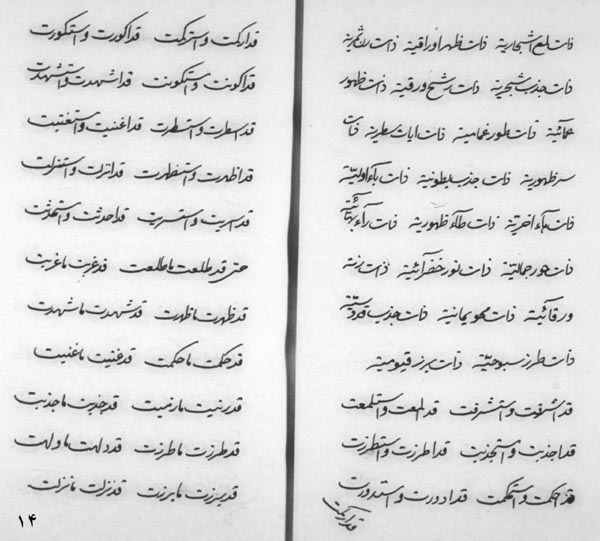 ذات لمع اشجارية ذات ظهر اوراقية ذات رشح ثمرية
ذات جذب شجرية ذات رشح ورقية ذات ظهور
عمائية ذات طور غمامية ذات ايات سطرية ذات
سر ظهورية ذات جذب بطونية ذات باء اولية
ذات هاء اخرية ذات طاء ظهورية ذات راء بهائية
ذات هور جمالية ذات نور خضرائية ذات رنة
ورقائية ذات محو يمانية ذات جذب فردوسية
ذات طرز سبوحية ذات برز قيومية
قد اشرقت واستشرقت قد المعت واستلمعت
قد اجذبت واستجذبت قد اطرزت واستطرزت
قد احكمت واستحكمت قد ادورت واستدورت
قد اركت
قد اركت واستركت قد اكورت واستكورت
قد اكونت واستكونت قد اشهدت واستشهدت
قد اسطرت واستسطرت قد اغنيت واستغنيت
قد اظهرت واستظهرت قد انزلت واستنزلت
قد اسريت واستسريت قد احدثت واستحدثت
حتى قد طلعت ما طلعت قد غربت ما غربت
قد ظهرت ما ظهرت قد شهدت ما شهدت
قد حكمت ما حكمت قد غنيت ما غنيت
قد رنيت ما رنيت قد جذبت ما جذبت
قد طرزت ما طرزت قد ولهت ما ولهت
قد برزت ما برزت قد نزلت ما نزلت
۱۴